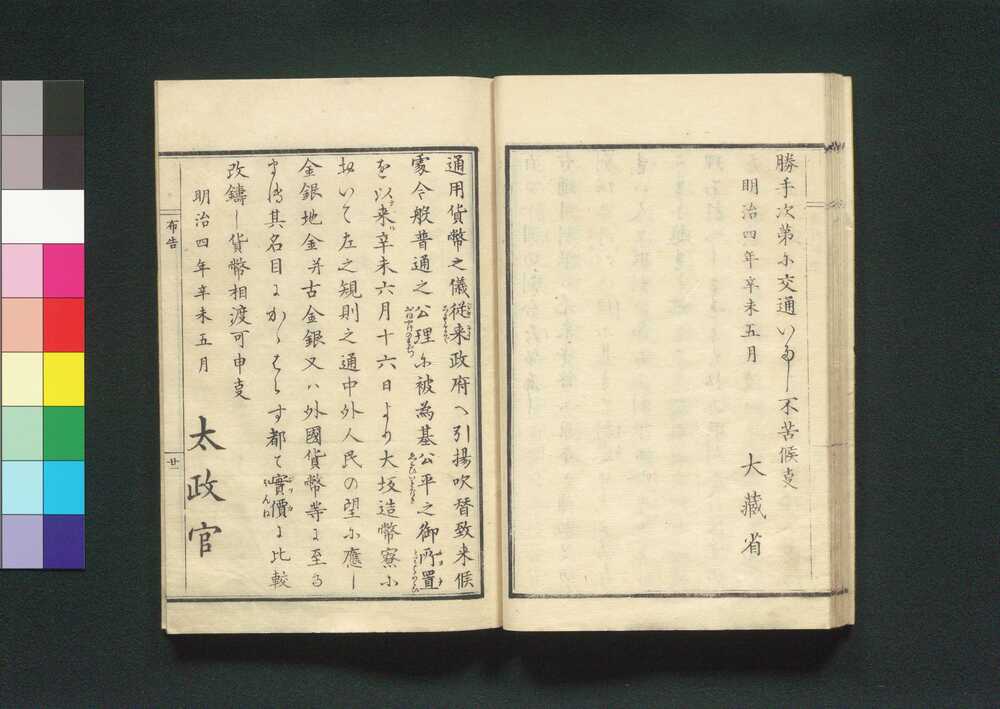 勝手次第小交通いたし不苦候事
明治四年辛未五月
大藏省
通用貨幣之儀従来政府へ引揚吹替致来候
處今般普通之公理尓被為基公平之御所置
を以来辛未六月十六日より大坂造幣寮小
おいて左之規則之通中外人民の望尓應し
金銀地金并古金銀又ハ外國貨幣等に至る
まて其名目にかゝはらす都て實價に比較
改鑄し貨幣相渡可申事
明治四年辛未五月
太政官
布告
廿一